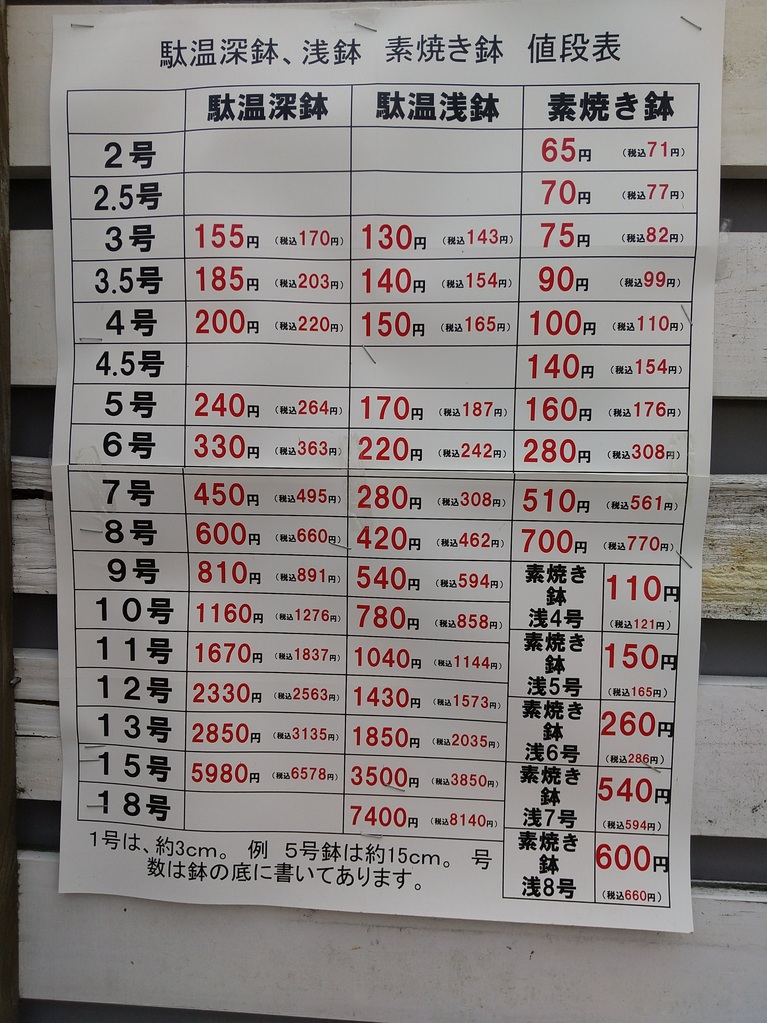 駄温深鉢、浅鉢 素焼き鉢 値段表
駄温深鉢 駄温浅鉢 素焼き鉢
2号 65円 (税込71円)
2.5号 70円 (税込77円)
3号 155円 (税込170円) 130円 (税込143円) 75円 (税込82円)
3.5号 185円 (税込203円) 140円 (税込154円) 90円 (税込99円)
4号 200円 (税込220円) 150円 (税込165円) 100円 (税込110円)
4.5号 140円 (税込154円)
5号 240円 (税込264円) 170円 (税込187円) 160円 (税込176円)
6号 330円 (税込363円) 220円 (税込242円) 280円 (税込308円)
7号 450円 (税込495円) 280円 (税込308円) 510円 (税込561円)
8号 600円 (税込660円) 420円 (税込462円) 700円 (税込770円)
9号 810円 (税込891円) 540円 (税込594円)
10号 1160円 (税込1276円) 780円 (税込858円)
11号 1670円 (税込1837円) 1040円 (税込1144円)
12号 2330円 (税込2563円) 1430円 (税込1573円)
13号 2850円 (税込3135円) 1850円 (税込2035円)
15号 5980円 (税込6578円) 3500円 (税込3850円)
18号 7400円 (税込8140円)
素焼き
鉢
浅4号
110円
(税込121円)
素焼き
鉢
浅5号
150円
(税込165円)
素焼き
鉢
浅6号
260円
(税込286円)
素焼き
鉢
浅7号
540円
(税込594円)
素焼き
鉢
浅8号
600円
(税込660円)
1号は、約3cm。 例 5号鉢は約15cm。 号
数は鉢の底に書いてあります。